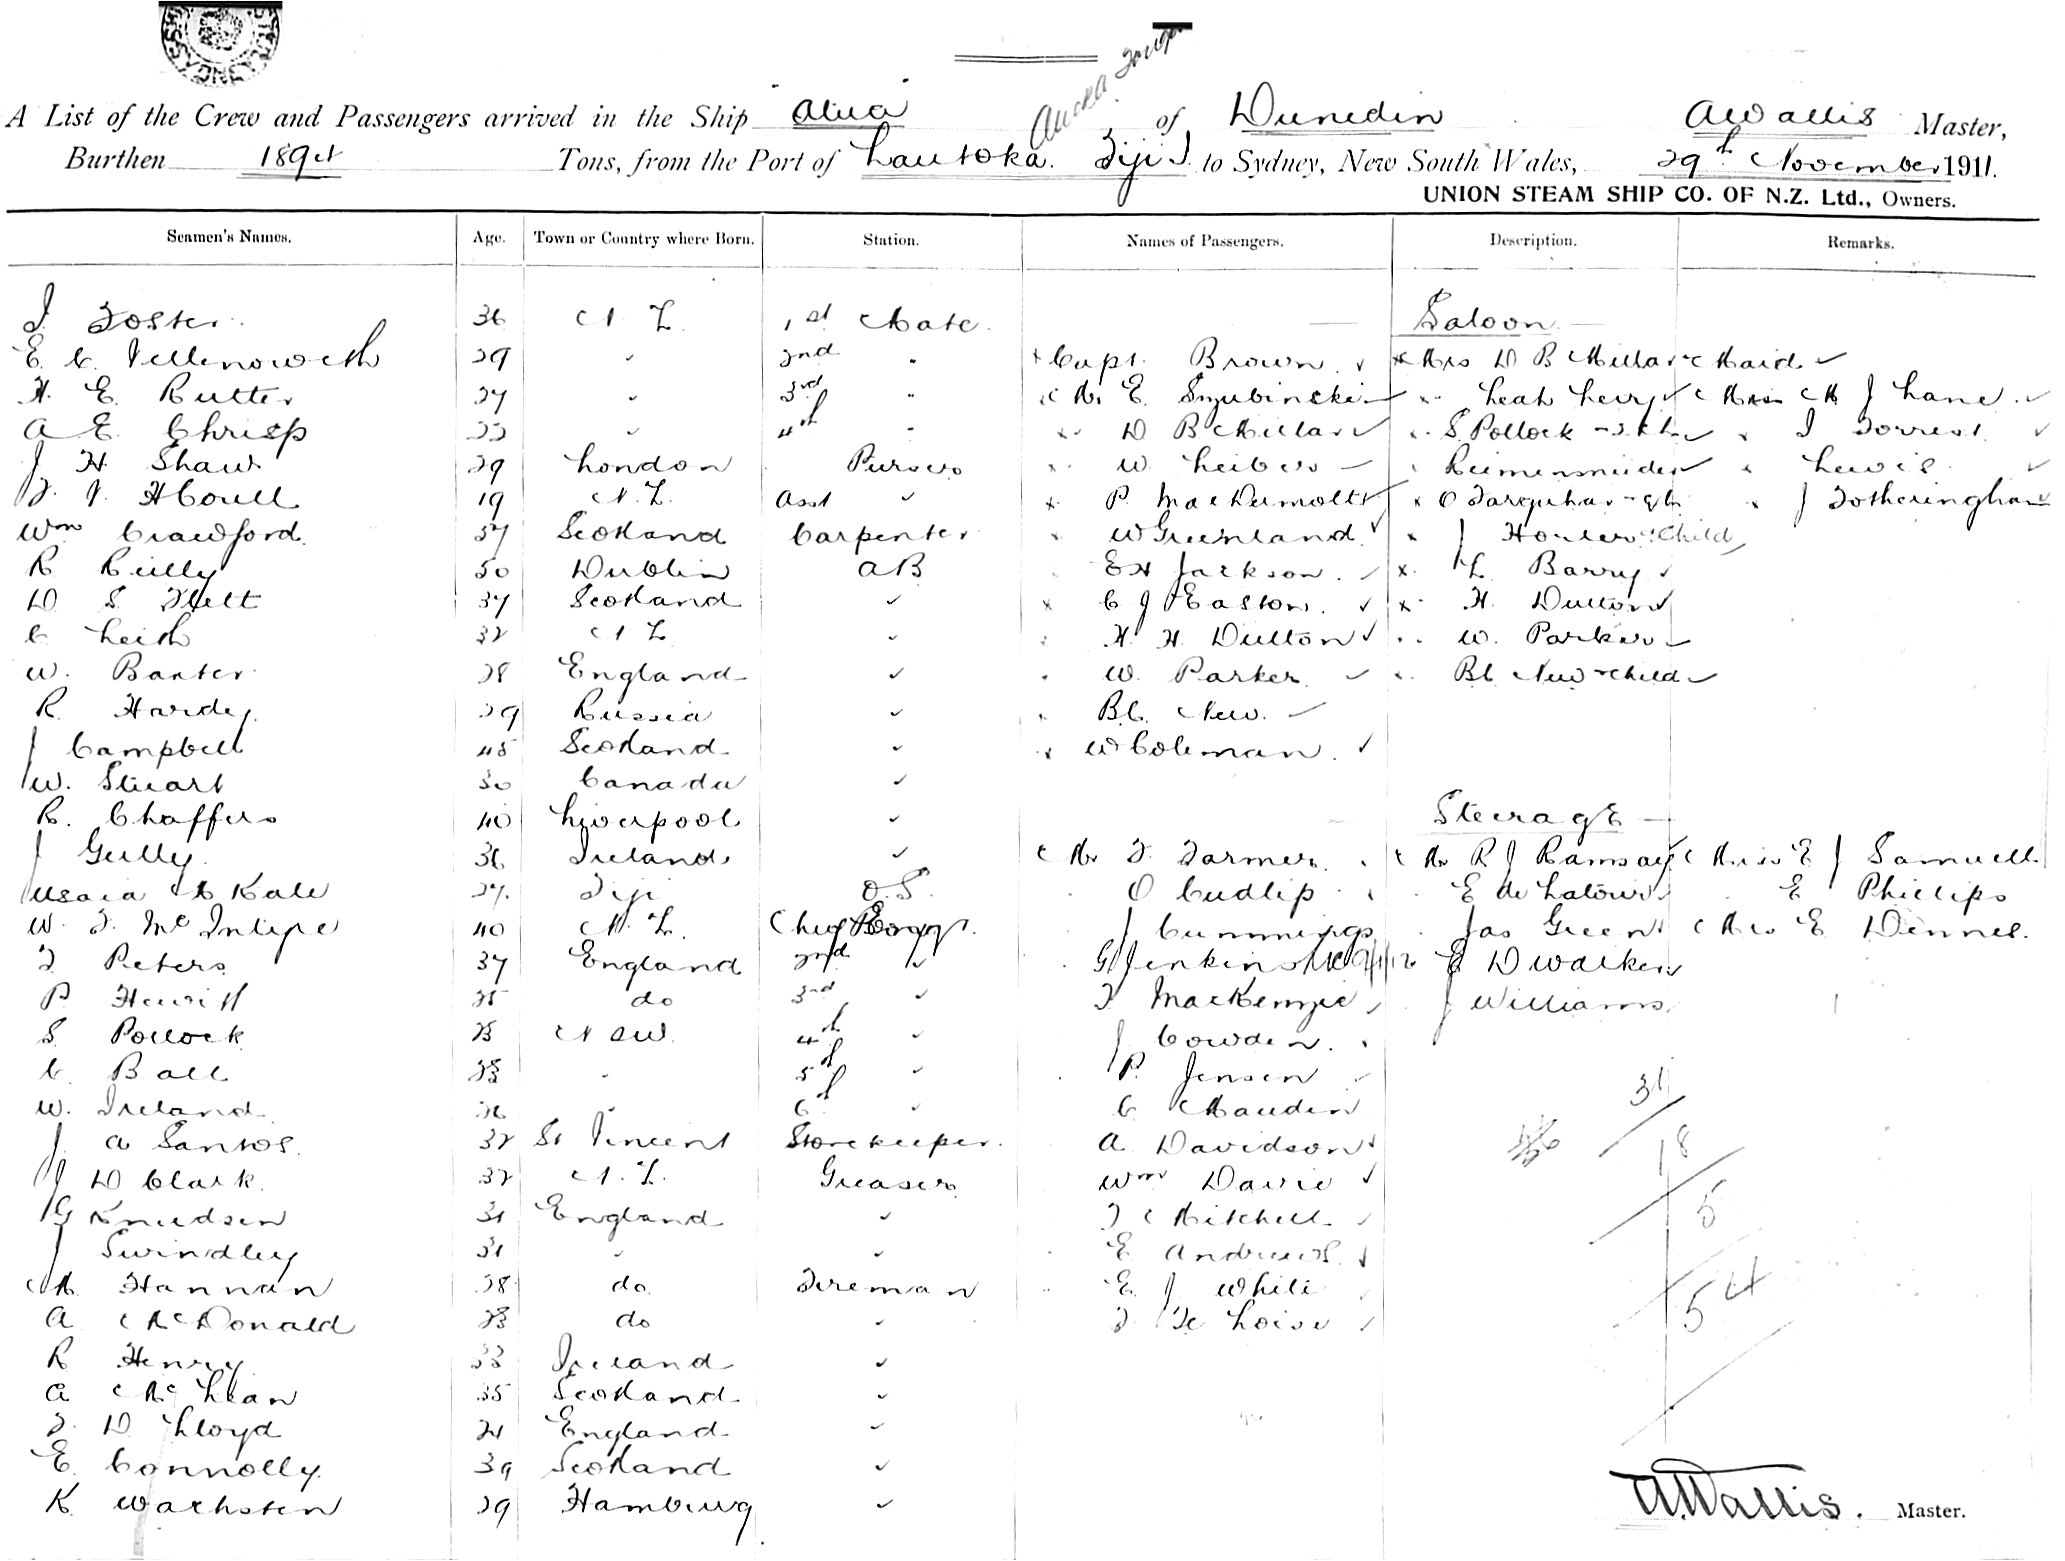 A List of the Crew and Passengers arrived in the Ship Atua of Dunedin AWallis Master,
Burthen Tons, from the Port of Lautoka. Fiji I. to Sydney, New South Wales, 29th November 1911.
UNION STEAM SHIP CO. OF N.Z. Ltd., Owners.
Seamen's Names. Age. Town or Country where Born. Station. Names of Passengers. Description. Remarks.
J Foster 36 N Z. 1st Mate. Saloon
E. C. 29 " 2nd " Capt. Brown Mrs D B Millar Maid
H. E. Rutter 27 " 3rd " Mr E. Szubinski Leah Levy Miss M J Lane
A E. Chrisp " 4th " D B Millar S. Pollock J Forrest
J H. Shaw 29 London Pursers W. Leibers Lewis
19 N.Z. Asst " P. MacDermott O Farquhar J Fotheringham
Wm Crawford. 57 Scotland Carpenter W Greenland J Child
R Reilly 50 Dublin AB E H Jackson L. Barry
D. S. Flett 37 Scotland " C J Easton. H. Dutton
C Leith 32 N Z " H. H. Dutton W. Parker
W. Baxter 28 England " W. Parker B C New child
R. Hardy 29 Russia " B.C. New.
J Campbell 45 Scotland " W Coleman.
W. Stuart 30 Canada "
R. Chaffers 40 Liverpool " Steerage
J Gully. 36 Ireland " Mr F. Farmer. Mr R J Ramsay Miss E J Samuell
Usaia M Kale 27. Fiji O.S. O Cudlip E de Latour E Phillips
W. F. McIntyre 40 N. Z. Chief Engr. J Cummings Jas Green Mrs E Dennes.
F Peters 37 England 2nd " G Jenkins E D Walker
P. Hewitt 25 do 3rd " F MacKenzie J Williams
S. Pollock 23 N S W. 4th " J Cowden.
C. Ball 23 " 5th " P. Jensen
W. Ireland 26 " 6th " C Maudin 31
J. A Santos. 32 St Vincent Storekeeper. A Davidson 18
J D Clark. 32 N. Z. Greasers Wm Davie
G Knudsen 31 England " F Mitchell 5
J Swindley 31 " " E Andrews.
M. Hannan 28 do Fireman E J White
A McDonald 23 do " 54
R Henry 33 Ireland "
A McLean 35 Scotland "
F. D Lloyd 21 England "
E. Connolly. 39 Scotland "
K Wachsten 29 Hamburg "
A.Wallis. Master.